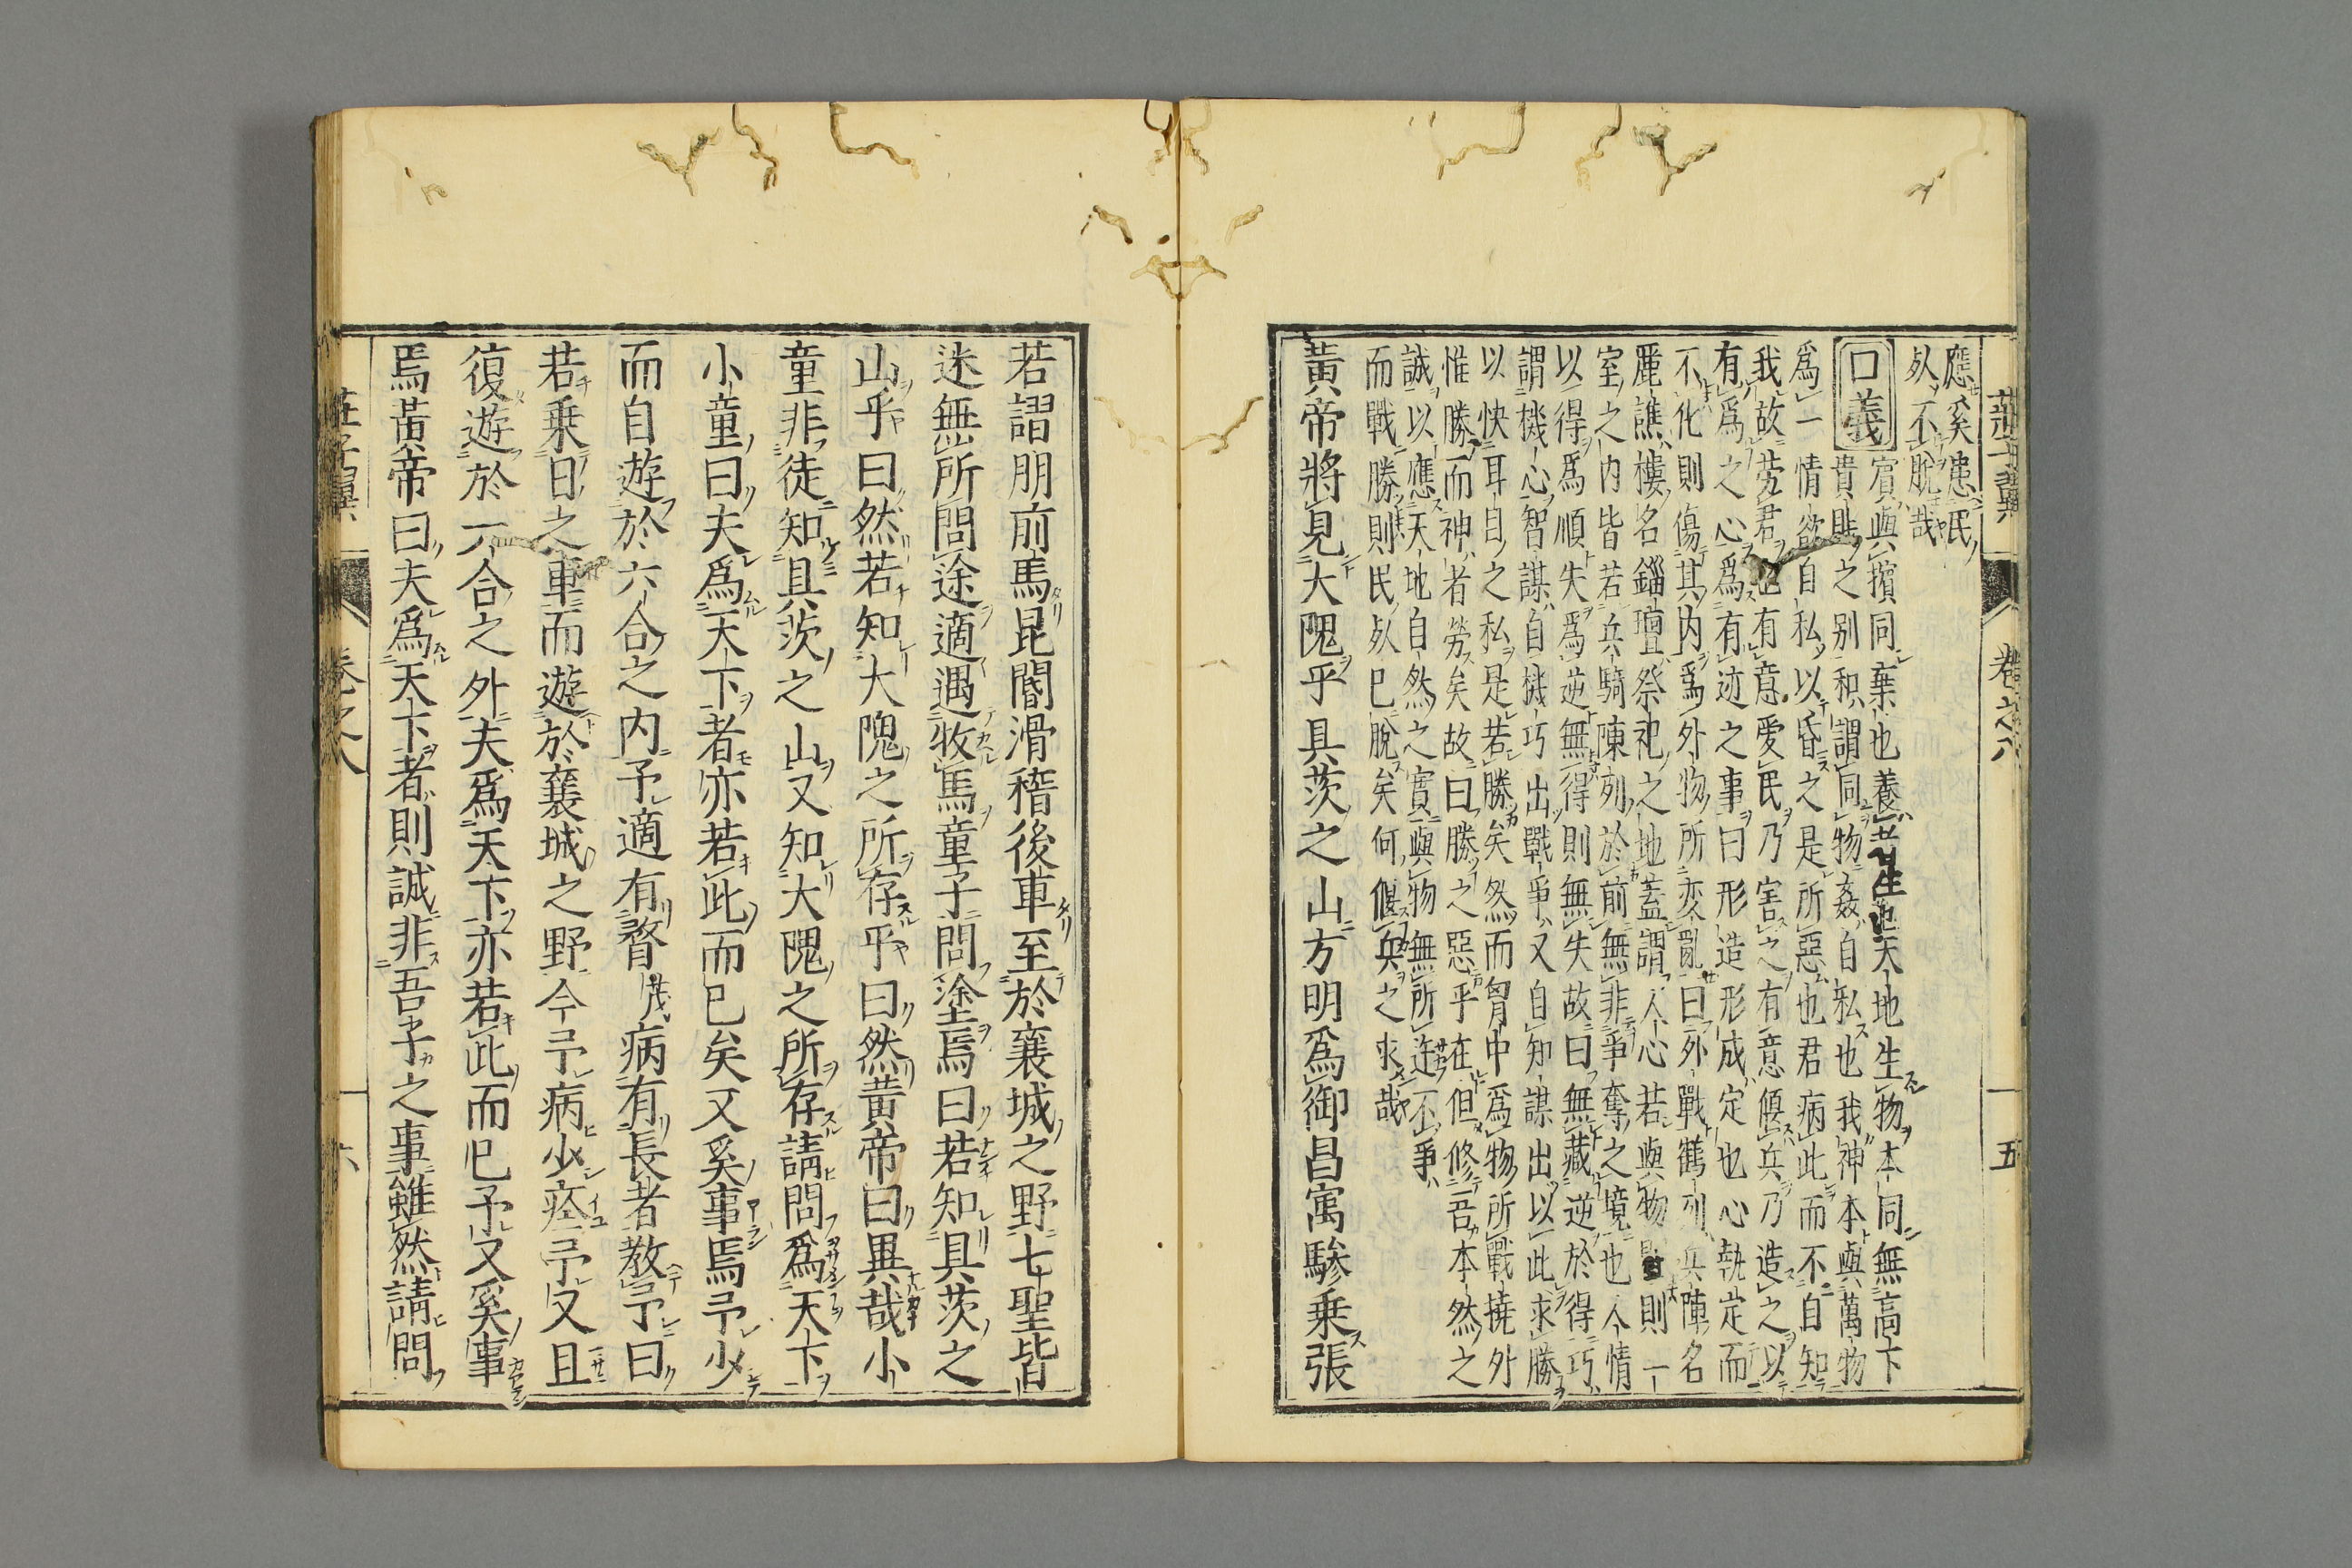 莊子翼
卷之八
五
應奚患民
死不脫哉
口義
賓與擯同棄也養生也天地生物本同無高下
貴賤之別和謂同物姦自私也我神本與萬物
爲一情欲自私以昏之是所惡也君病此而不自知
我故勞君也有意愛民乃害之有意偃兵乃造之以
有爲之心爲有迹之事曰形造形成定也心執定而
不化則傷其内爲外物所変亂曰外戰鶴列兵陣名
麗譙樓名錙壇祭祀之地蓋謂人心若與物則一
室之内皆若兵騎陳列於前無非爭奪之境也人情
以得爲順失爲逆無得則無失故曰無藏逆於得巧
謂機心智謀自機巧出戰爭又自知謀出以此求勝
以快耳目之私是若勝矣然而胷中爲物所戰撓外
惟勝而神者勞矣故曰勝之惡乎在但修吾本然之
誠以應天地自然之實與物無所迕不爭
而戰勝則民死已脫矣何偃兵之求哉
黃帝將見大隗乎具茨之山方明爲御昌寓驂乗張
若謵朋前馬昆閽滑稽後車至於襄城之野七聖皆
迷無所問途適遇牧馬童子問塗焉曰若知具茨之
山乎曰然若知大隗之所存乎曰然黃帝曰異哉小
童非徒知具茨之山又知大隗之所存請問爲天下
小童曰夫爲天下者亦若此而已矣又奚事焉予少
而自遊於六合之内予適有瞀茂病有長者教予曰
若乗日之車而遊於襄城之野今予病少痊予又且
復遊於六合之外夫爲天下亦若此而已予又奚事
焉黃帝曰夫爲天下者則誠非吾子之事雖然請問
莊子翼
卷之八
六